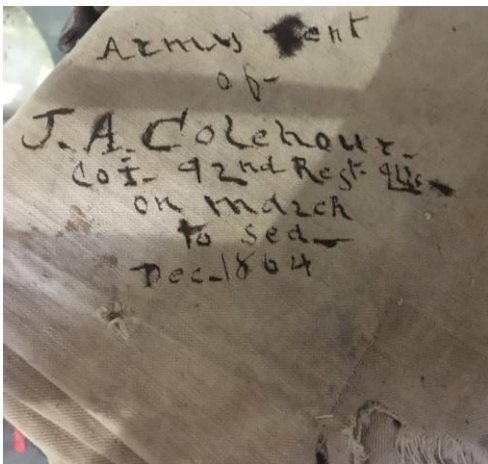 Army Tent
of
J. A. Colehour
Co I - 92nd Regt Ills
on march
to sea
Dec. 1864